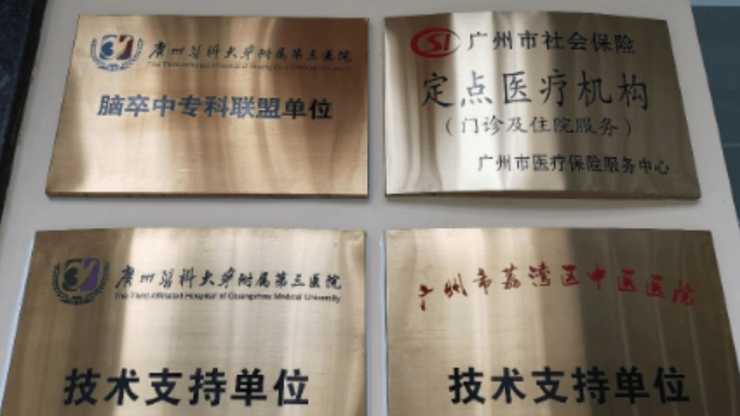 广州医科大学附属第三医院
The Third Affiliated Hospital of Guangzhou Medical University
脑卒中专科联盟单位
SI 广州市社会保险
定点医疗机构
（门诊及住院服务）
广州市医疗保险服务中心
广州医科大学附属第三医院
The Third Affiliated Hospital of Guangzhou Medical University
技术支持单位
广州市荔湾区中医医院
技术支持单位